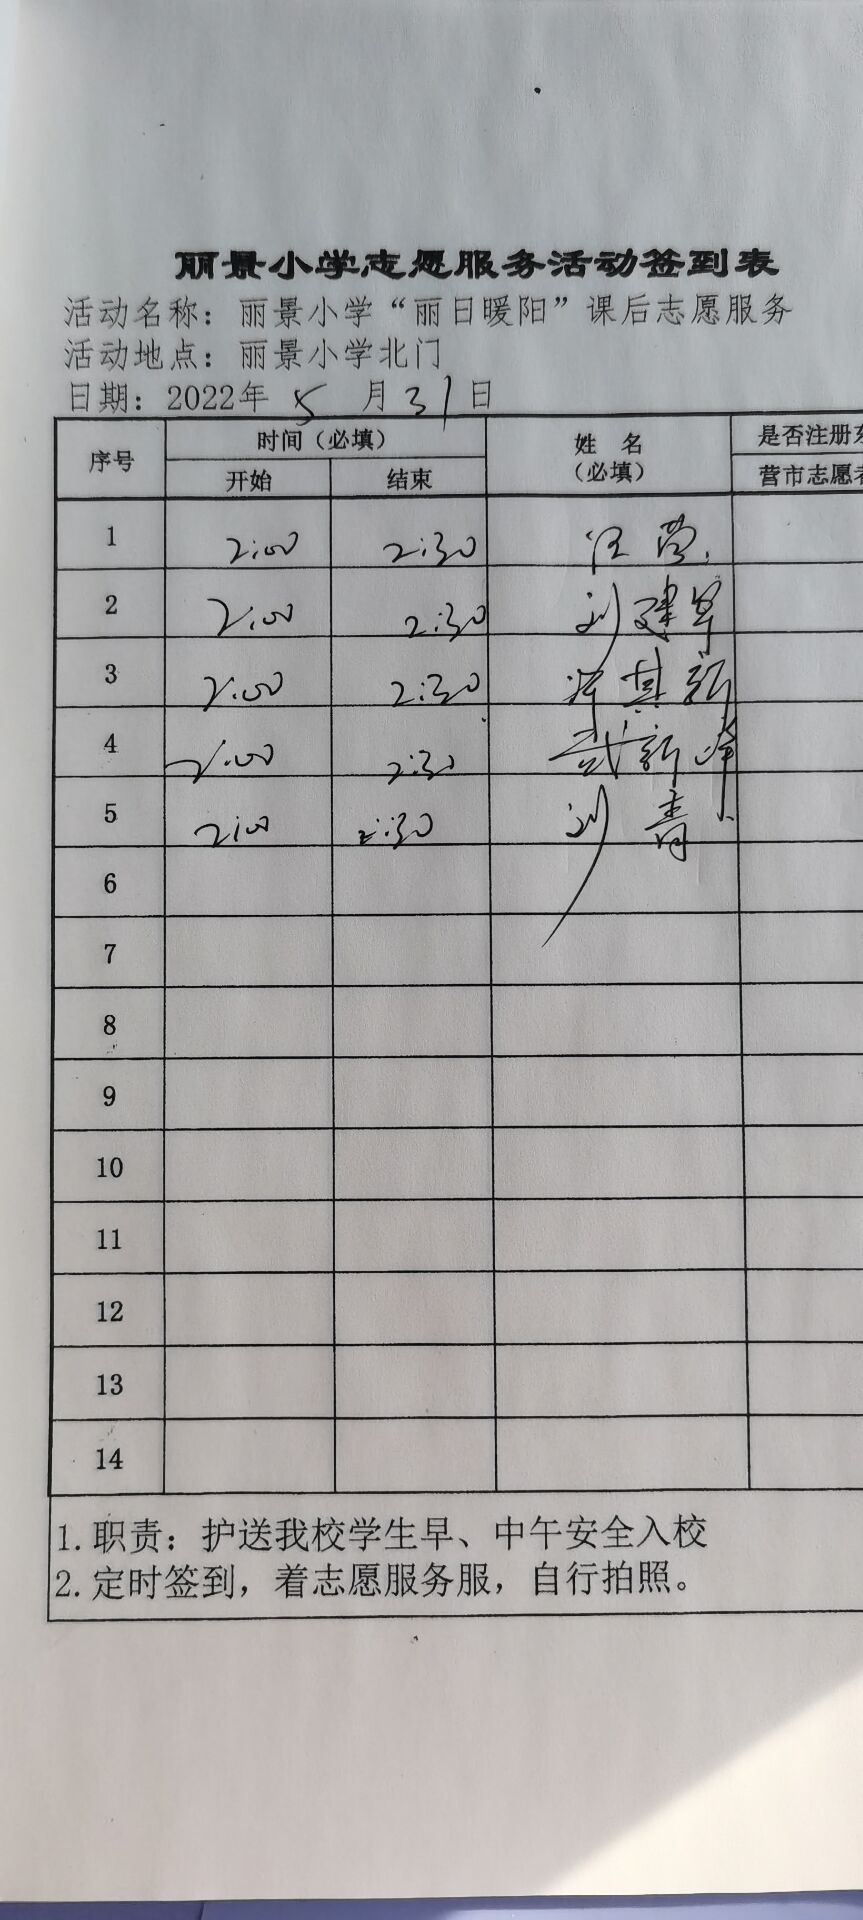 丽景小学志愿服务活动签到表
活动名称：丽景小学“丽日暖阳”课后志愿服务
活动地点：丽景小学北门
日期：2022年 5 月 31 日
序号 时间（必填） 姓 名 是否注册东
开始 结束 （必填） 营市志愿者
1 2:00 2:30 汪营
2 2:00 2:30 刘建军
3 2:00 2:30 其新
4 2:00 2:30 武新峰
5 2:00 2:30 刘青
6
7
8
9
10
11
12
13
14
1.职责：护送我校学生早、中午安全入校
2.定时签到，着志愿服务服，自行拍照。